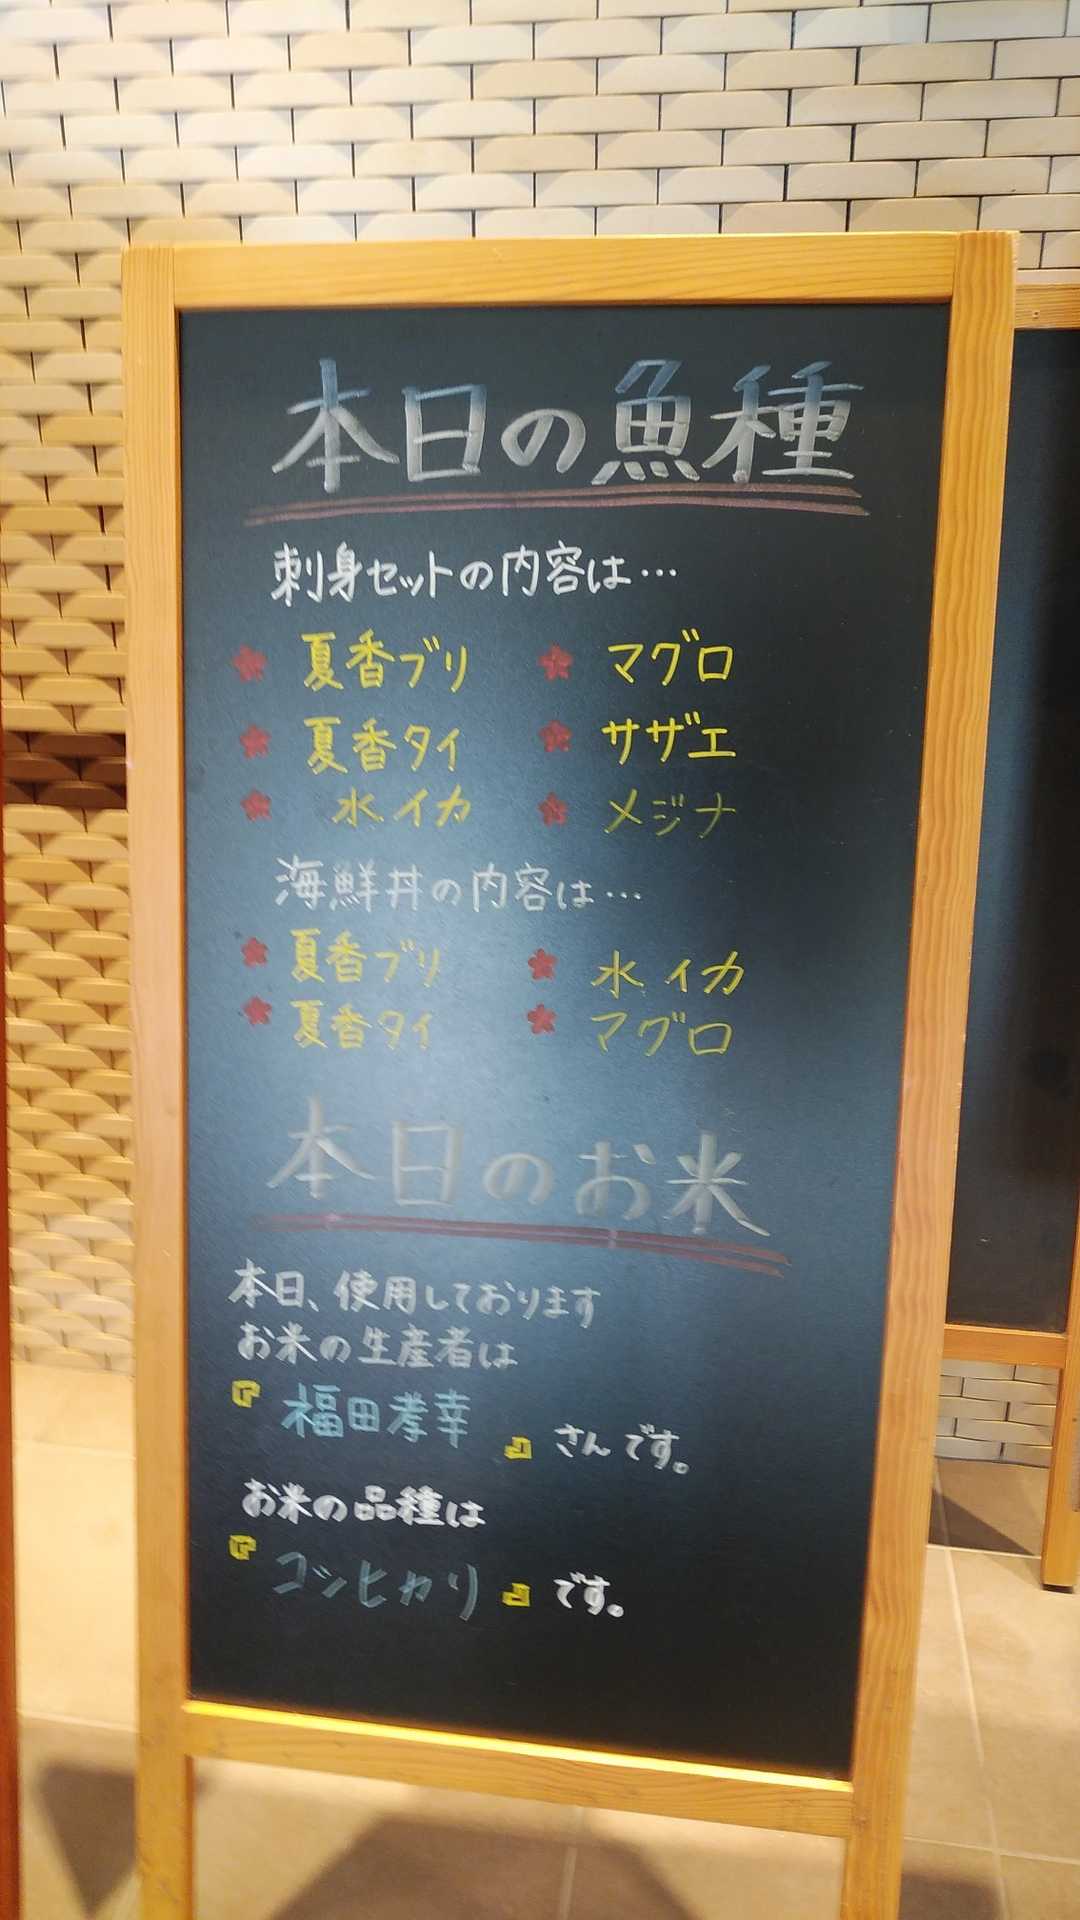 本日の魚種
刺身セットの内容は…
夏香ブリ マグロ
夏香タイ サザエ
水イカ メジナ
海鮮丼の内容は…
夏香ブリ 水イカ
夏香タイ マグロ
本日のお米
本日、使用しております
お米の生産者は
『福田孝幸』さんです。
お米の品種は
『コシヒカリ』です。